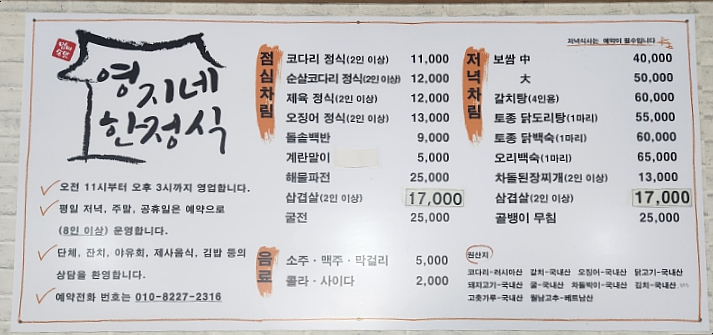 영지네
한정식
오전 11시부터 오후 3시까지 영업합니다.
평일 저녁, 주말, 공휴일은 예약으로
(8인 이상) 운영합니다.
단체, 잔치, 야유회, 제사음식, 김밥 등의
상담을 환영합니다.
예약전화 번호는 010-8227-2316
점심차림
코다리 정식(2인 이상) 11,000
순살코다리 정식(2인 이상) 12,000
제육 정식(2인 이상) 12,000
오징어 정식(2인 이상) 13,000
돌솥백반 9,000
계란말이 5,000
해물파전 25,000
삼겹살(2인 이상) 17,000
굴전 25,000
음료
소주 · 맥주 · 막걸리 5,000
콜라 · 사이다 2,000
저녁식사는 예약이 필수입니다
저녁차림
보쌈 中 40,000
大 50,000
갈치탕(4인용) 60,000
토종 닭도리탕(1마리) 55,000
토종 닭백숙(1마리) 60,000
오리백숙(1마리) 65,000
차돌된장찌개(2인 이상) 13,000
삼겹살(2인 이상) 17,000
골뱅이 무침 25,000
원산지
코다리-러시아산 갈치-국내산 오징어-국내산 닭고기-국내산
돼지고기-국내산 굴-국내산 차돌박이-국내산 김치-국내산
고춧가루-국내산 월남고추-베트남산